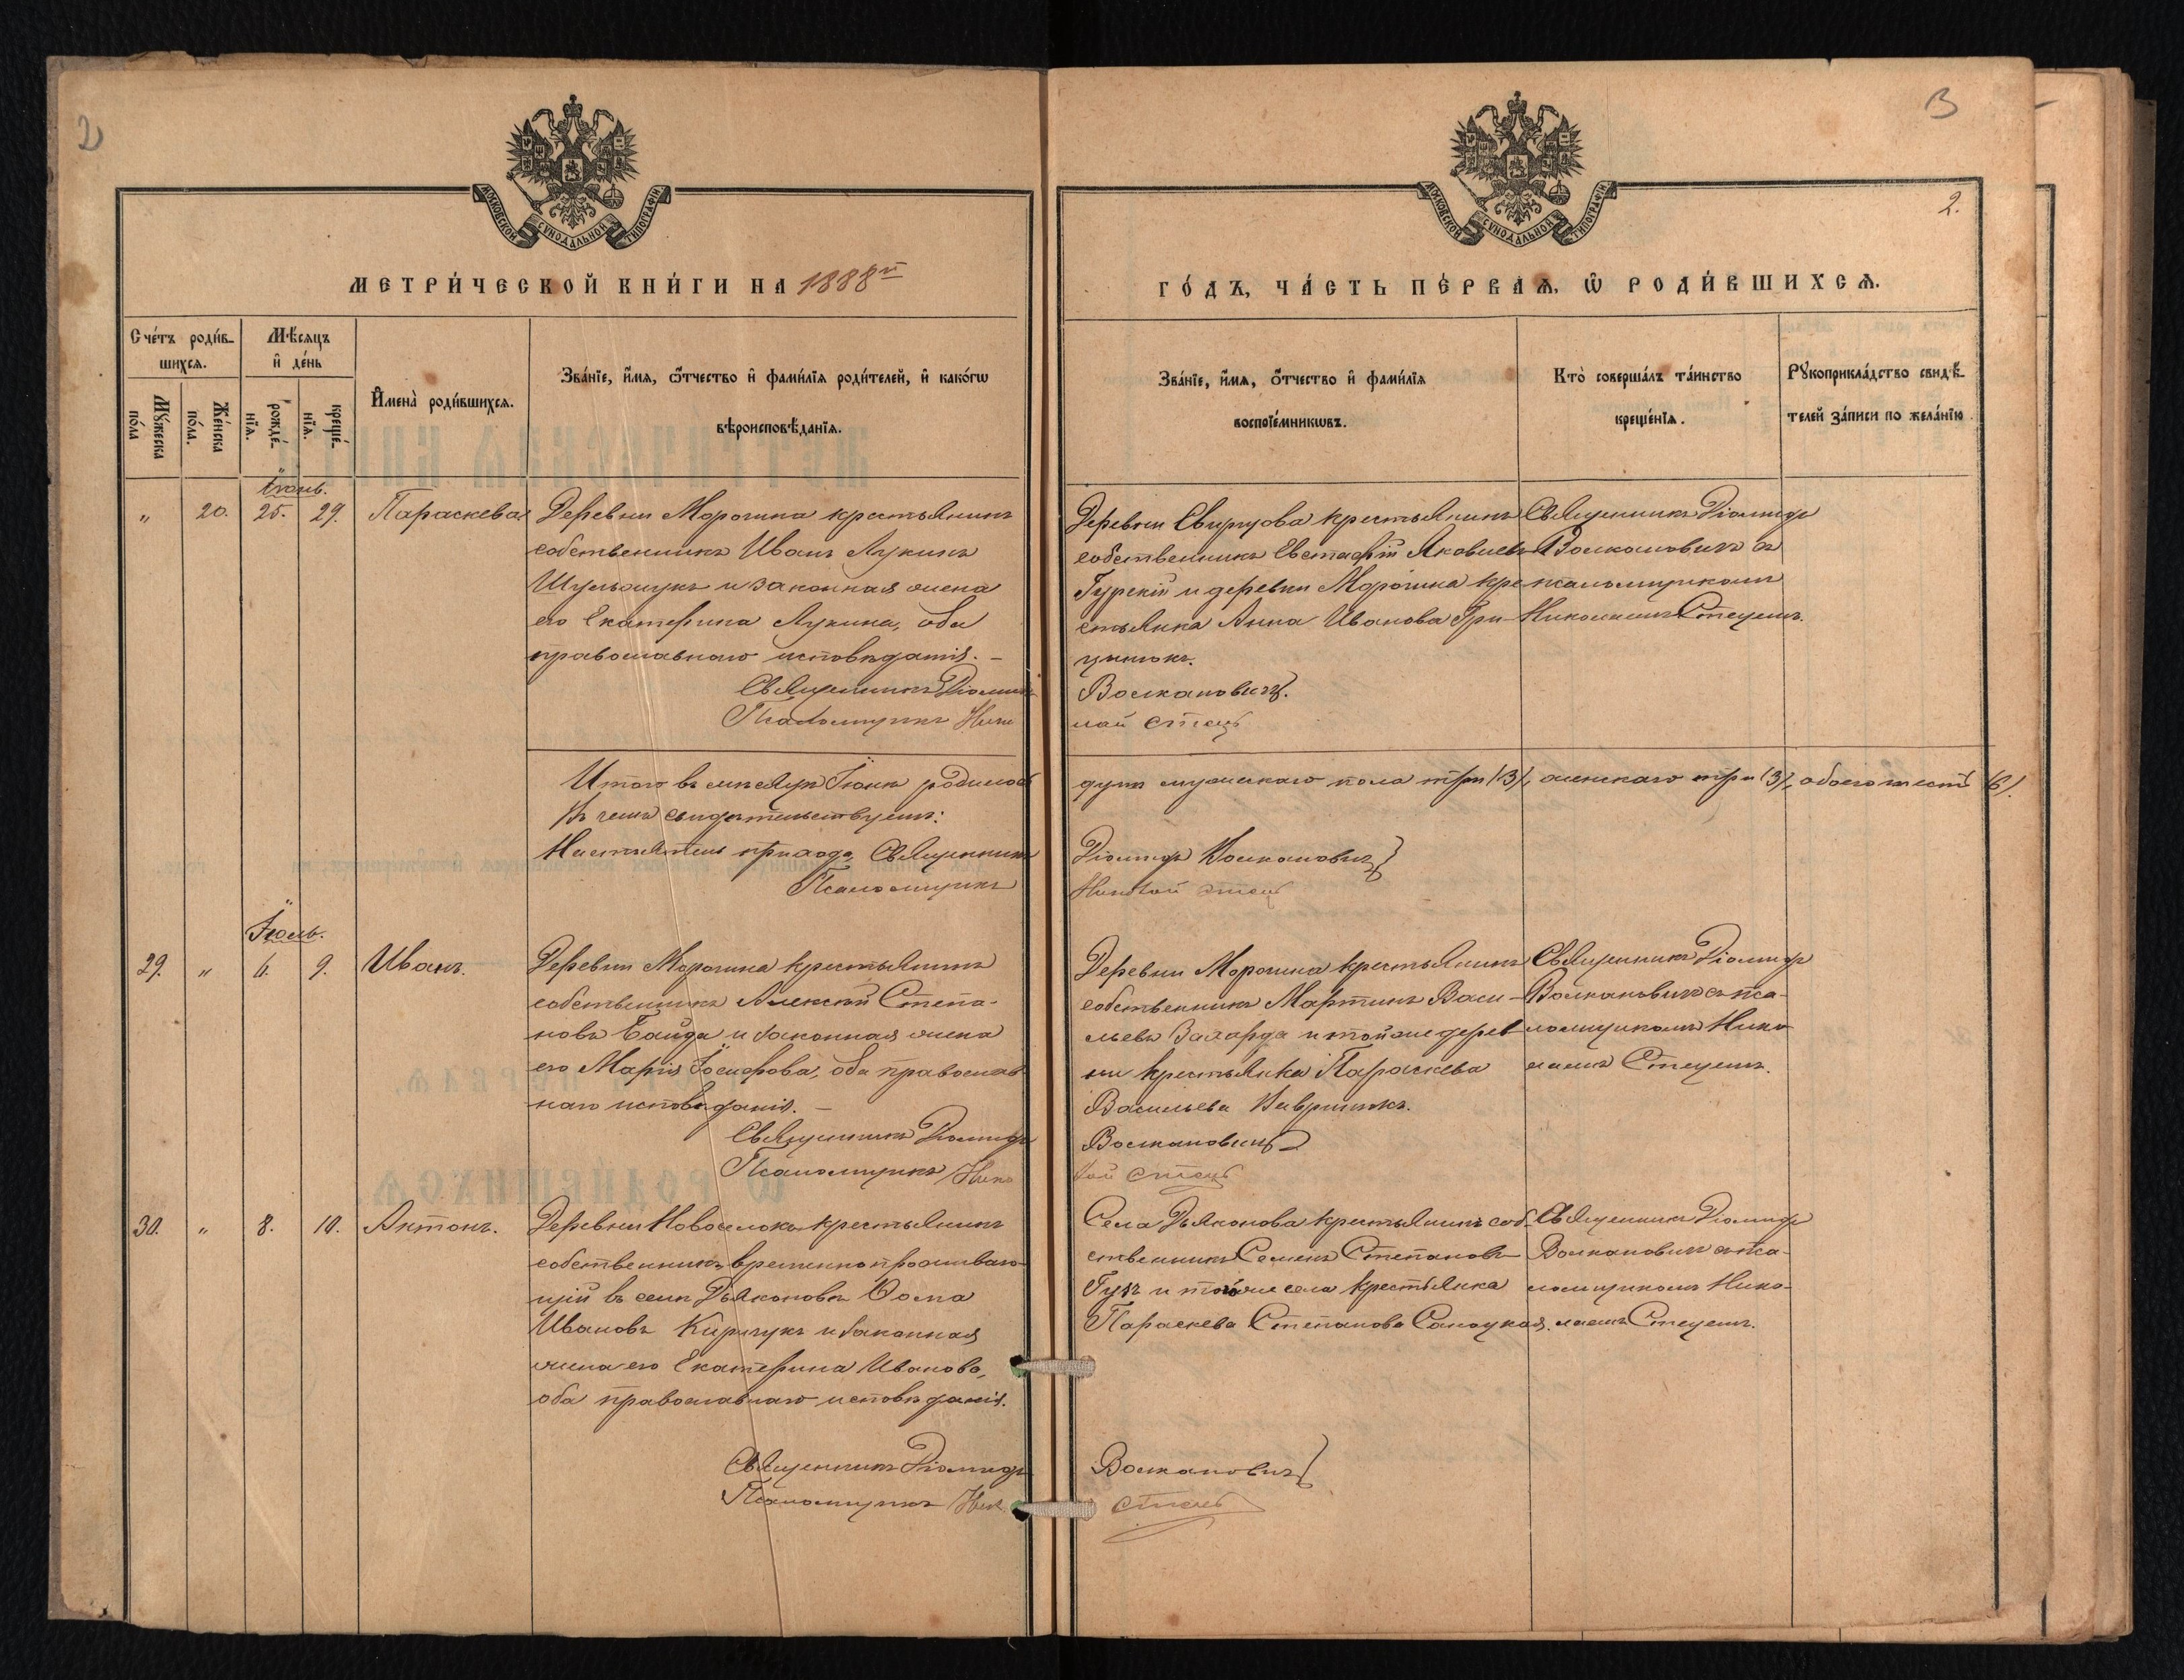 2
3
2.
МОСКОВСКОЙ СУНОДАЛЬНОЙ ТИПОГРАФІИ
МОСКОВСКОЙ СУНОДАЛЬНОЙ ТИПОГРАФІИ
МЕТРИ́ЧЕСКОЙ КНИ́ГИ НА 1888й
ГО́ДЪ, ЧА́СТЬ ПЕ́РВАѦ, Ѡ РОДИ́ВШИХСѦ.
Сче́тъ роди́в-
шихсѧ.
Мѣ́сѧцъ
и де́нь
Му́жеска
по́ла
Же́нска
по́ла.
рожде́-
нїѧ.
креще́-
нїѧ.
И҆мена̀ роди́вшихсѧ.
Зва́нїе, и҆́мѧ, ѻ҆́тчество и҆ фами́лїѧ роди́телей, и҆ како́гѡ
вѣроисповѣ́данїѧ.
Зва́нїе, и҆́мѧ, ѻ҆́тчество и҆ фами́лїѧ
воспрїе́мникѡвъ.
Кто̀ соверша́лъ та́инство
креще́нїѧ.
Рꙋкоприкла́дство свидѣ́-
телей за́писи по жела́нїю
Іюнь.
" 20. 25. 29. Параскева
Деревни Морочина крестьянинъ
собственникъ Иванъ Лукинъ
Шульощукъ и законная жена
его Екатерина Лукина, оба
православнаго исповѣданія. –
Священникъ Діомидъ
Псаломщикъ Нико
Деревни Свирщова крестьянинъ
собственникъ Евстафій Яковлевъ
Гурскій и деревни Морочина кре
стьянка Анна Иванова Гри-
цынюкъ.
Волкановичъ.
лай Стецъ
Священникъ Діомидъ
Волкановичъ съ
псаломщикомъ
Николаемъ Стецемъ.
Итого въ мѣсяцѣ Іюнѣ родилось
Въ чемъ свидѣтельствуемъ:
Настоятель прихода, Священникъ
Псаломщикъ
душъ мужескаго пола три (3), женскаго три (3), обоего шесть (6).
Діомидъ Волкановичъ
Николай Стецъ
Іюль.
29. " 6. 9. Иванъ.
Деревни Морочина крестьянинъ
собственникъ Алексѣй Степа-
новъ Байда и законная жена
его Марія Іосифова, оба православ
наго исповѣданія. –
Священникъ Діомидъ
Псаломщикъ Нико
Деревни Морочина крестьянинъ
собственникъ Мартинъ Васи-
льевъ Захарда и той же дерев
ни крестьянка Параскева
Васильева Вавринюкъ.
Волкановичъ
лай Стецъ
Священникъ Діомидъ
Волкановичъ съ пса-
ломщикомъ Нико
лаемъ Стецемъ.
30. " 8. 10. Антонъ.
Деревни Новоселокъ крестьянинъ
собственникъ, временно проживаю
щій въ селѣ Дьяконовѣ Ѳома
Ивановъ Киричукъ и законная
жена его Екатерина Иванова,
оба православнаго исповѣданія.
Священникъ Діомидъ
Псаломщикъ Ник.
Села Дьяконова крестьянинъ соб
ственникъ Семенъ Степановъ
Гузъ и того же села крестьянка
Параскева Степанова Саноцкая.
Волкановичъ
Стецъ
Священникъ Діомидъ
Волкановичъ съ пса-
ломщикомъ Нико-
лаемъ Стецемъ.